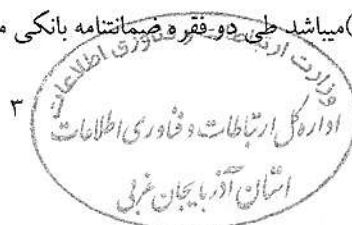 )میباشد طی دو فقره ضمانتنامه بانکی م
وزارت ارتباطات و فناوری اطلاعات
۳
اداره کل ارتباطات و فناوری اطلاعات
استان آذربایجان غربی